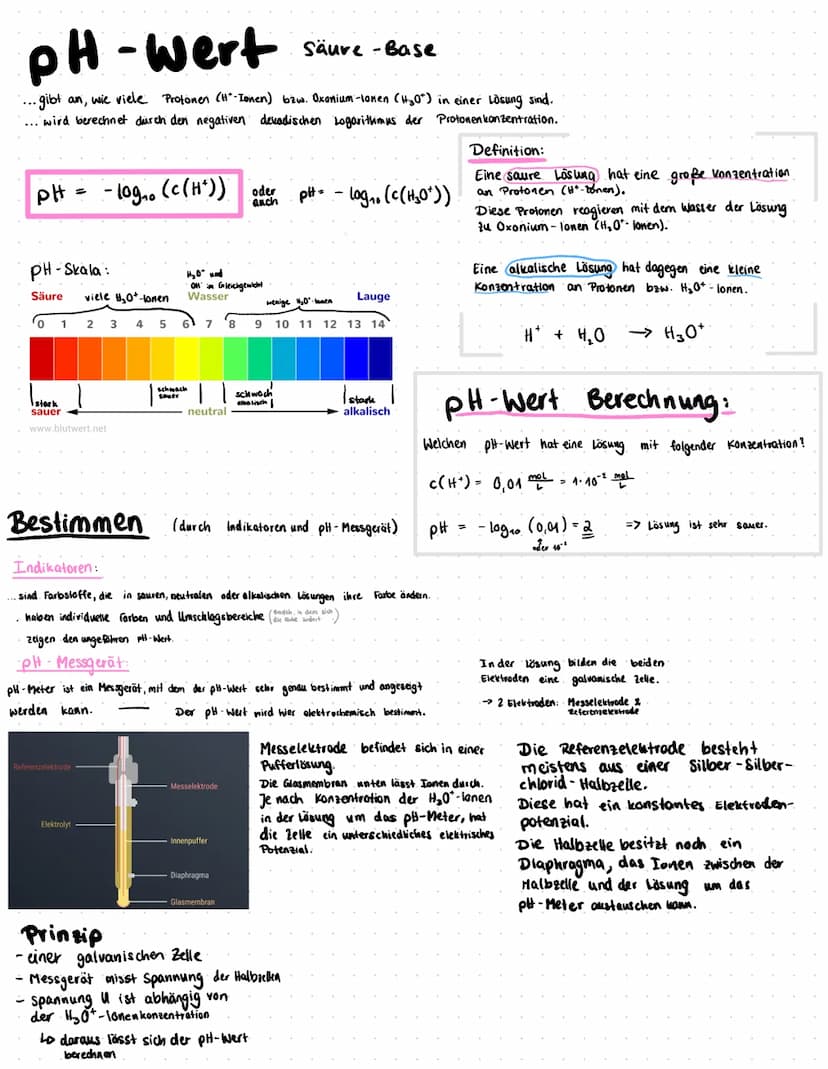 pH-Wert Säure-Base
...gibt an, wie viele Protonen (H⁺-Ionen) bzw. Oxonium-Ionen (H₃O⁺) in einer Lösung sind.
... wird berechnet durch den negativen dekadischen Logarithmus der Protonenkonzentration.
pH = -log₁₀ (c(H⁺))
oder auch
pH = - log₁₀ (c(H₃O⁺))
Definition:
Eine saure Lösung hat eine große Konzentration
an Protonen (H⁺-Ionen).
Diese Protonen reagieren mit dem Wasser der Lösung
zu Oxonium-Ionen (H₃O⁺-Ionen).
Eine alkalische Lösung hat dagegen eine kleine
Konzentration an Protonen bzw. H₃O⁺-Ionen.
H⁺ + H₂O → H₃O⁺
pH-Skala:
H₃O⁺ und
OH⁻ in Gleichgewicht
Säure viele H₃O⁺-Ionen Wasser wenige H₃O⁺-Ionen Lauge
0 1 2 3 4 5 6 7 8 9 10 11 12 13 14
stark schwach sauer schwach alkalisch stark
sauer neutral alkalisch
www.blutwert.net
pH-Wert Berechnung:
Welchen pH-Wert hat eine Lösung mit folgender Konzentration?
c(H⁺) = 0,01 mol/L = 1·10⁻² mol/L
pH = -log₁₀ (0,01) = 2 => Lösung ist sehr sauer.
oder 10⁻²
Bestimmen (durch Indikatoren und pH-Messgerät)
Indikatoren:
...sind Farbstoffe, die in sauren, neutralen oder alkalischen Lösungen ihre Farbe ändern.
. haben individuelle Farben und Umschlagsbereiche (Bereich, in dem sich die Farbe ändert)
zeigen den ungefähren pH-Wert.
pH-Messgerät:
pH-Meter ist ein Messgerät, mit dem der pH-Wert sehr genau bestimmt und angezeigt
werden kann. — Der pH-Wert wird hier elektrochemisch bestimmt.
In der Lösung bilden die beiden
Elektroden eine galvanische Zelle.
→ 2 Elektroden: Messelektrode &
Referenzelektrode
Referenzelektrode
Messelektrode
Elektrolyt
Innenpuffer
Diaphragma
Glasmembran
Messelektrode befindet sich in einer
Pufferlösung.
Die Glasmembran unten lässt Ionen durch.
Je nach Konzentration der H₃O⁺-Ionen
in der Lösung um das pH-Meter, hat
die Zelle ein unterschiedliches elektrisches
Potenzial.
Die Referenzelektrode besteht
meistens aus einer Silber-Silber-
chlorid-Halbzelle.
Diese hat ein konstantes Elektroden-
potenzial.
Die Halbzelle besitzt noch ein
Diaphragma, das Ionen zwischen der
Halbzelle und der Lösung um das
pH-Meter austauschen kann.
Prinzip
- einer galvanischen Zelle
- Messgerät misst Spannung der Halbzellen
- Spannung U ist abhängig von
der H₃O⁺-Ionenkonzentration
↳ daraus lässt sich der pH-Wert
berechnen